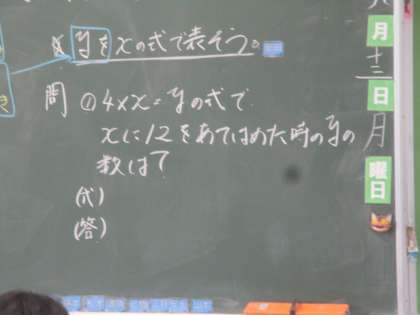 yをxの式で表そう。
問 ① 4×x=yの式で
xに12をあてはめた時のyの
数は?
(式)
(答)
月
十三
日
月
曜日